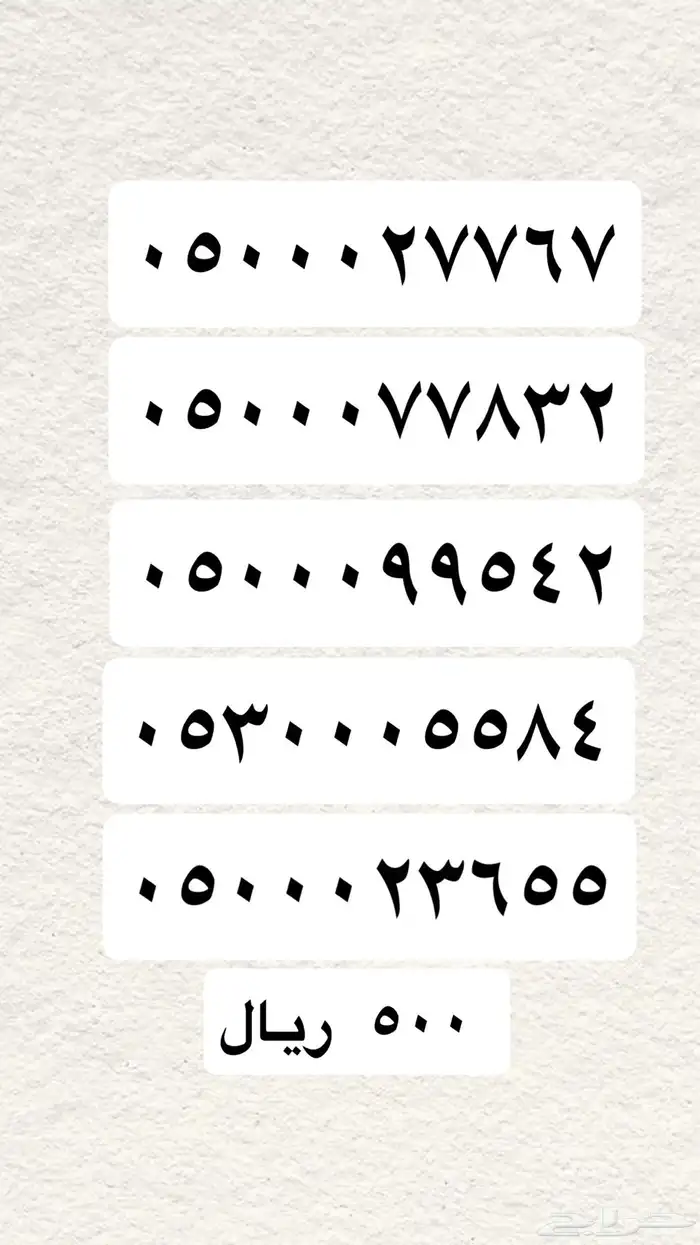 ٠٥٠٠٠٢٧٧٦٧
٠٥٠٠٠٧٧٨٣٢
٠٥٠٠٠٩٩٥٤٢
٠٥٣٠٠٠٥٥٨٤
٠٥٠٠٠٢٣٦٥٥
٥٠٠ ريال
حراج